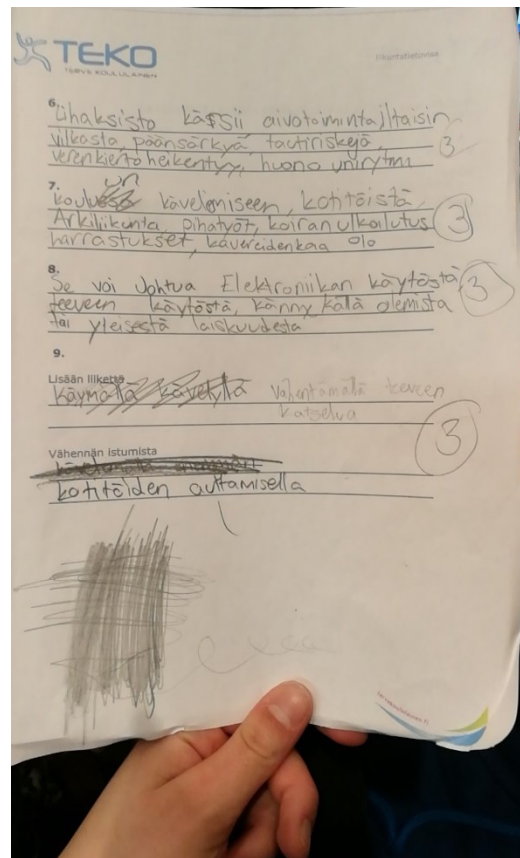 TEKO
TERVE KOULULAINEN
liikuntatietovisa
6.
Lihaksisto kässii aivotoiminta, iltaisin
vilkasta, päänsärkyä, tautiriskejä,
verenkierto heikentyy, huono unirytmi
3
7.
kouluun kävelemiseen, kotitöistä,
Arkiliikunta, pihatyöt, koiran ulkoilutus
harrastukset, kavereidenkaa olo
3
8.
Se voi johtua Elektroniikan käytöstä
teeveen käytöstä, kännykällä olemista
tai yleisestä laiskuudesta
3
9.
Lisään liikettä
Käymällä kävelyllä vähentämällä teeveen
katselua
3
Vähennän istumista
kotitöiden auttamisella
tervekoululainen.fi